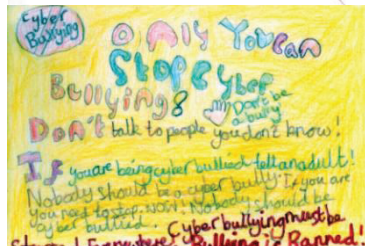 Cyber
Bullying
Only You can
Stop Cyber
Bullying8
Don't be
a bully
Don't talk to people you don't know!
If you are being cyber bullied tell an adult!
Nobody should be a cyber bully. If you are
you need to stop. NOW! Nobody should be
cyber bullied. Cyber bullying must be
Bullying is Banned!